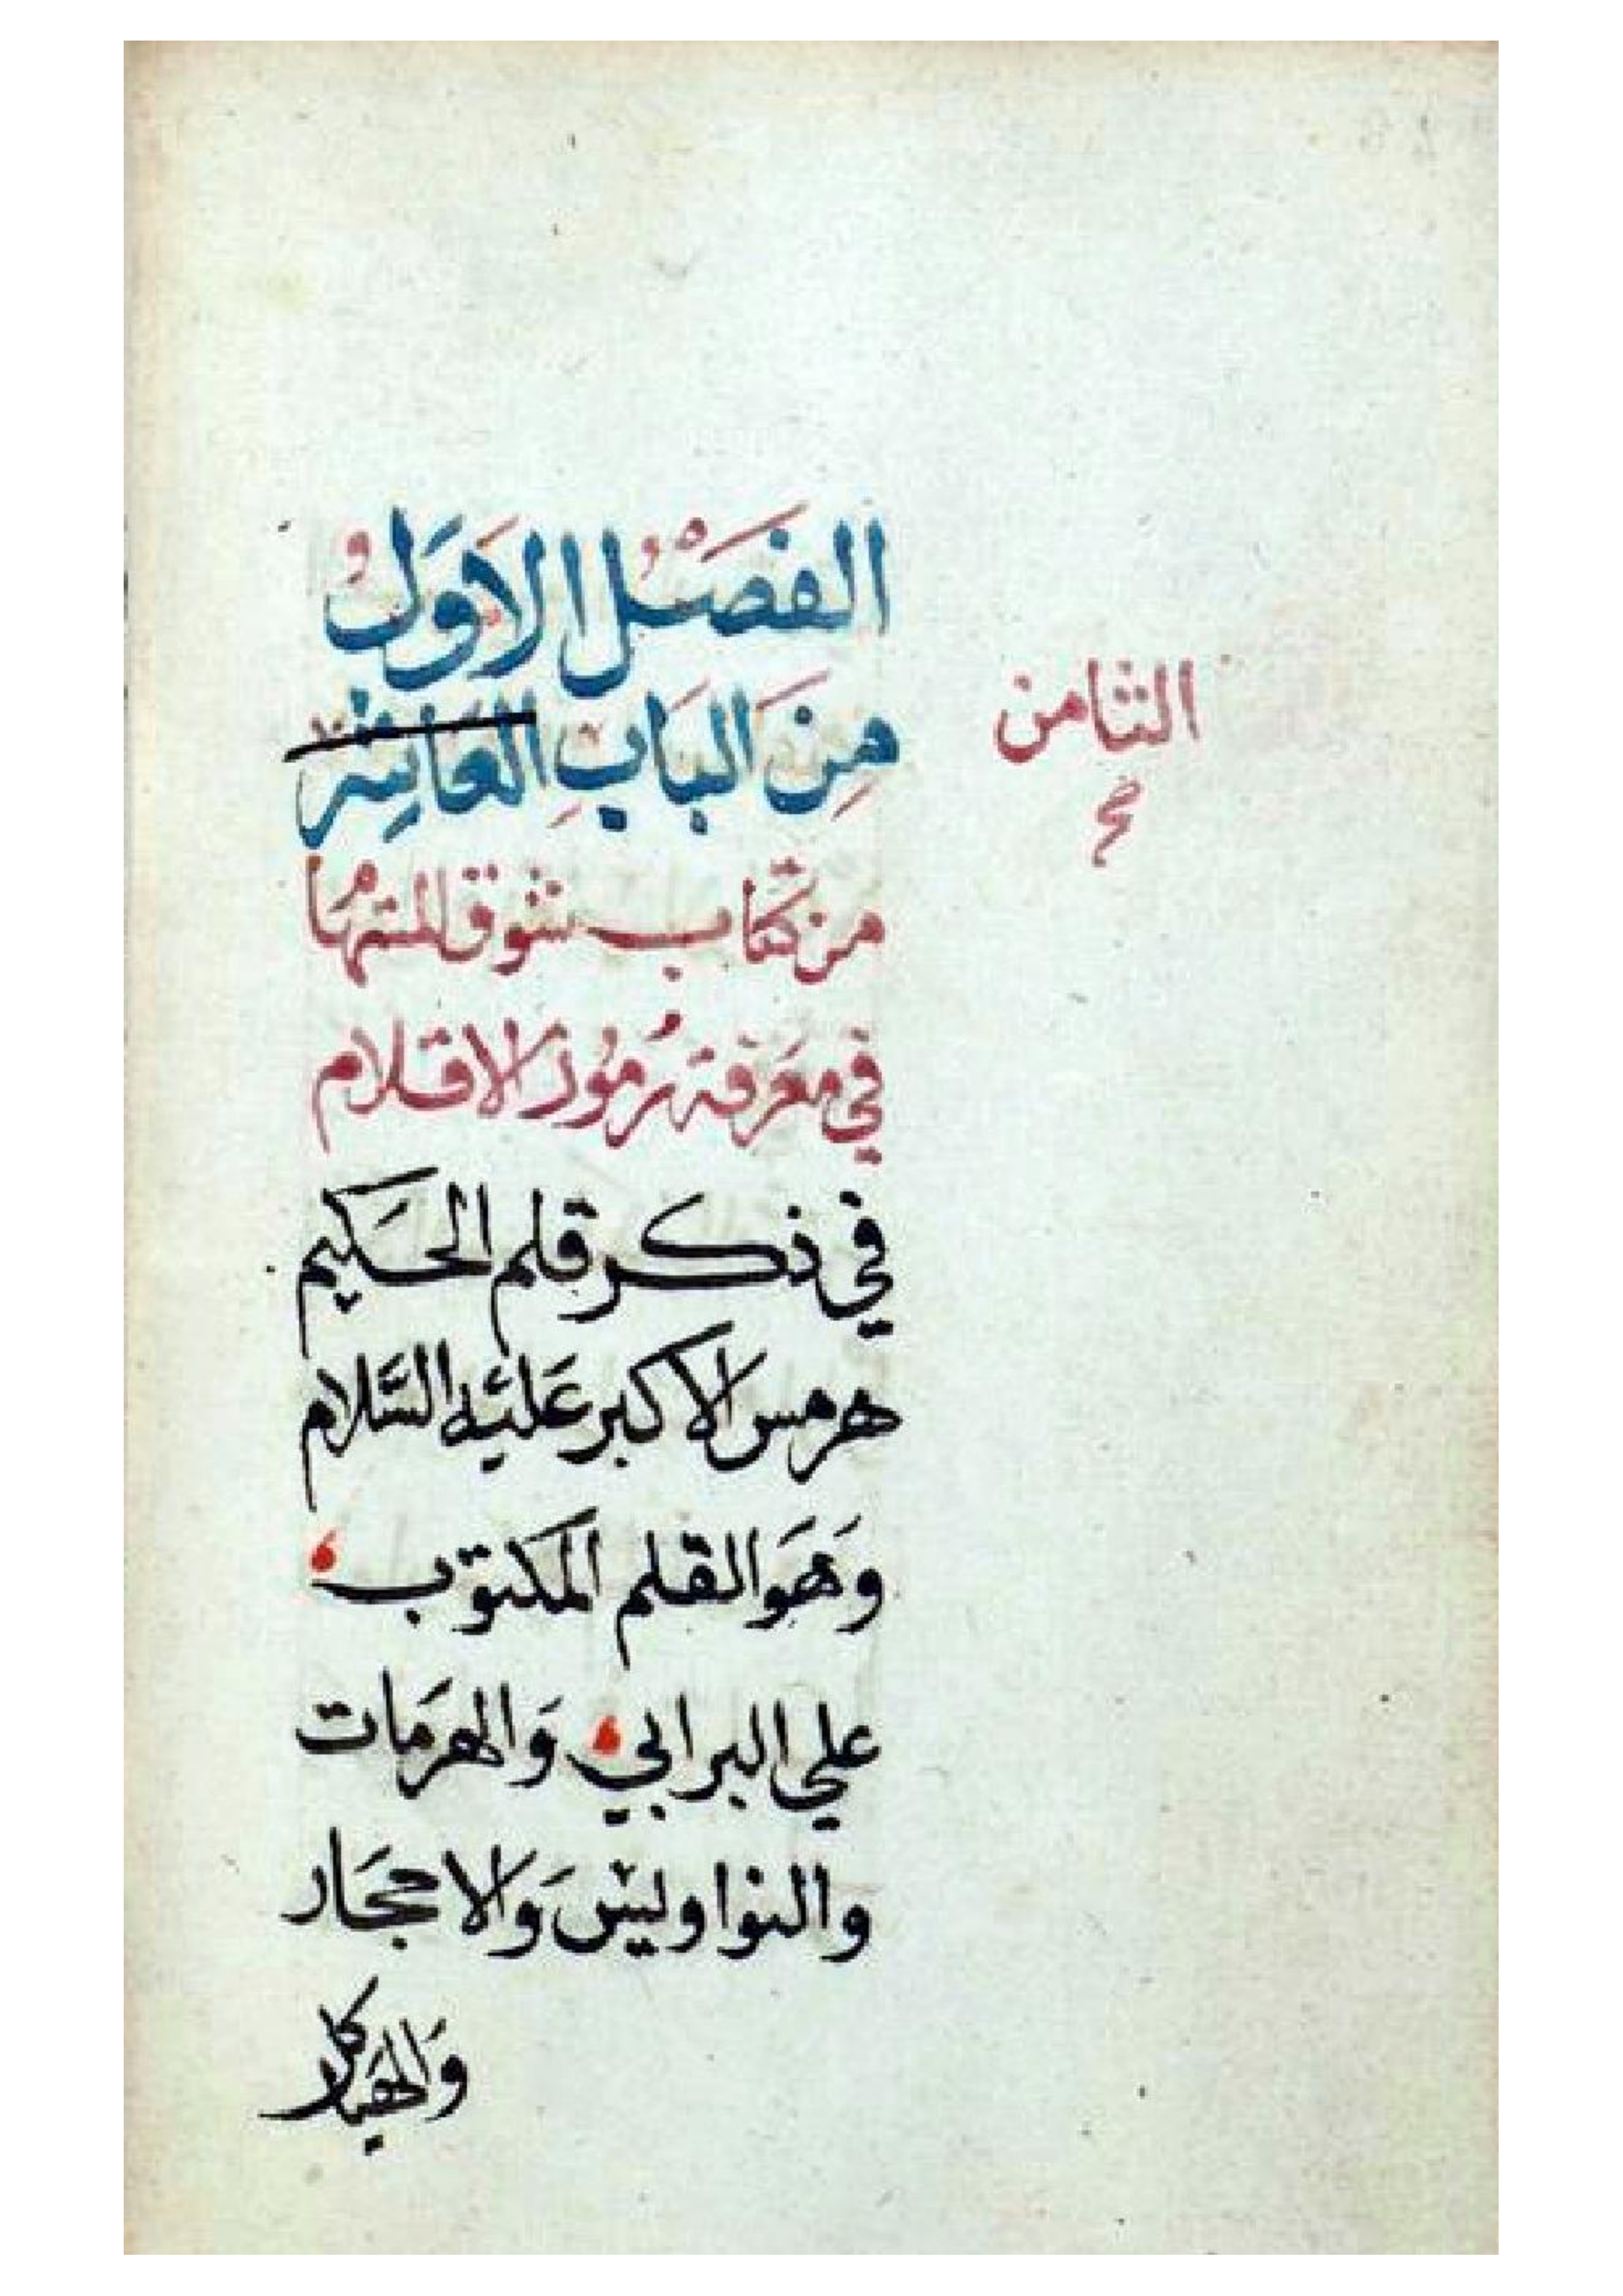 الفَصْلُ الاَوَلُ
مِنَ البَابِ العَاشر
الثامن
صح
من كتاب شوق المستهُا
في معَرفة رُمُوز الاقلام
في ذكر قلم الحَكيم
هرمس الاكبر عَليْه السَّلام
وَهَوَ القلم المكتوب
علي البرابي وَالهرمَات
والنواويسْ وَالاحجَار
وَالهَياكل